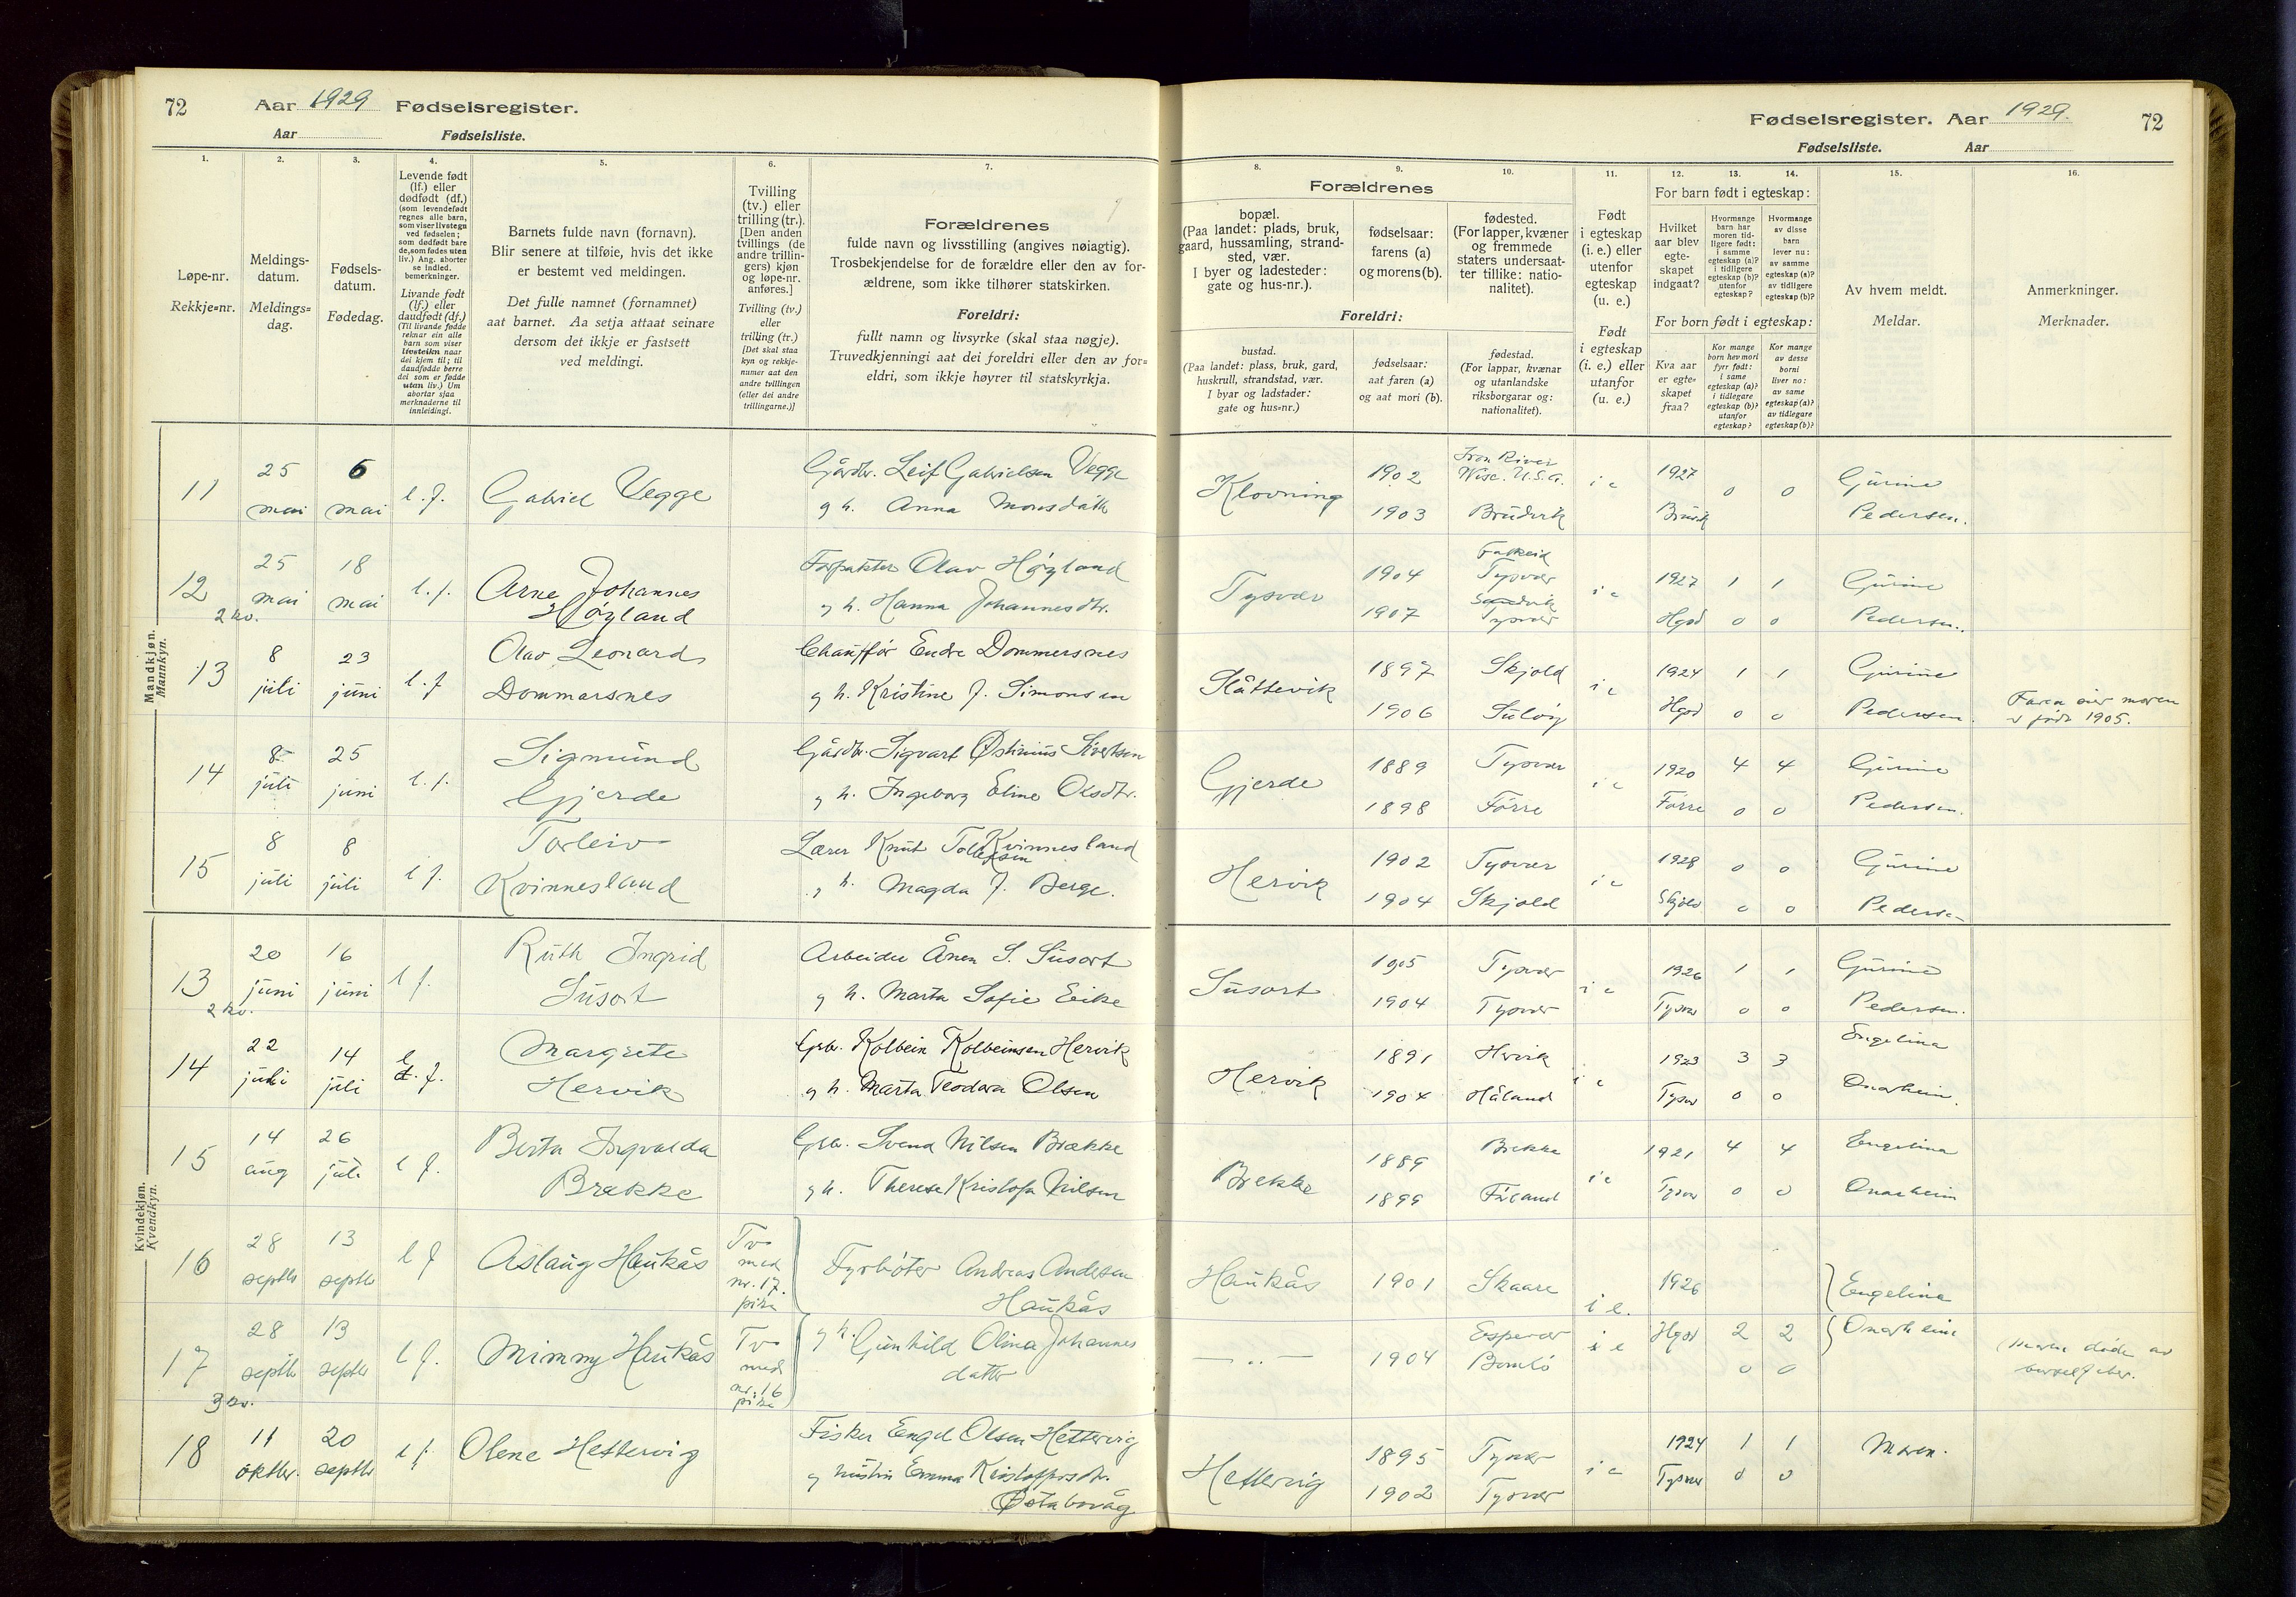 72 Aar 1929 Fødselsregister.
Aar Fødselsliste.
1. 2. 3. 4. 5. 6. 7.
Løpe-nr.
Rekkje-nr.
Meldings-
datum.
Meldings-
dag.
Fødsels-
datum.
Fødedag.
Levende født
(lf.) eller
dødfødt (df.)
(som levendefødt
regnes alle barn,
som viser livstegn
ved fødselen;
som dødfødt bare
de, som fødes uten
liv.) Ang. aborter
se indled.
bemerkninger.
Livande født
(lf.) eller
daudfødt (df.)
(Til livande fødde
reknar ein alle
barn som viser
livsteikn naar
dei kjem til; til
daudfødde berre
dei som er fødde
utan liv.) Um
abortar sjaa
merknaderne til
innleidingi.
Barnets fulde navn (fornavn).
Blir senere at tilføie, hvis det ikke
er bestemt ved meldingen.
Det fulle namnet (fornamnet)
aat barnet. Aa setja attaat seinare
dersom det ikkje er fastsett
ved meldingi.
Tvilling
(tv.) eller
trilling (tr.).
[Den anden
tvillings (de
andre trillin-
gers) kjøn
og løpe-nr.
anføres.]
Tvilling (tv.)
eller
trilling (tr.)
[Det skal staa
kyn og rekkje-
numer aat den
andre tvillingen
(eller dei andre
trillingarne.)]
Forældrenes
fulde navn og livsstilling (angives nøiagtig).
Trosbekjendelse for de forældre eller den av for-
ældrene, som ikke tilhører statskirken.
Foreldri:
fullt namn og livsyrke (skal staa nøgje).
Truvedkjenningi aat dei foreldri eller den av for-
eldri, som ikkje høyrer til statskyrkja.
Mandkjøn.
Mannkyn.
11 25 mai 6 mai l.f. Gabriel Vegge
Gårdbr. Leif Gabrielsen Vegge
g h. Anna Monsdatter
12 25 mai 18 mai l.f. Arne Johannes
Høyland
Forpakter Olav Høyland
g h. Hanna Johannesdtr.
2 kv.
13 8 juli 23 juni l.f Olav Leonard
Dommarsnes
Chauffør Endre Dommersnes
g h. Kristine J. Simonsen
14 8 juli 25 juni l.f. Sigmund
Gjerde
Gårdbr. Sigvart Østinius Sivertsen
g h. Ingeborg Eline Olsdtr.
15 8 juli 8 juli l f. Torleiv
Kvinnesland
Lærer Knut Tollefsen Kvinnesland
g h. Magda J. Berge.
Kvindekjøn.
Kvendkyn.
13 20 juni 16 juni l f. Ruth Ingrid
Susort
Arbeider Ånen S. Susort
g h. Marta Sofie Eike
2 kv.
14 22 juli 14 juli l. f. Margrete
Hervik
Grbr. Kolbein Kolbeinsen Hervik
g h. Marta Teodora Olsen
15 14 aug 26 juli l f. Berta Ingvalda
Brekke
Grbr. Svend Nilsen Brække
g h. Therese Kristofa Nilsen
16 28 septbr 13 septbr l f Aslaug Haukås
Tv.
med
nr. 17.
pike
Fyrbøter Andreas Andersen
Haukås
17 28 septbr 13 septbr l f. Mimmy Haukås
Tv
med
nr: 16
pike
g h. Gunhild Olina Johannes
datter
3 kv.
18 11 oktbr. 20 septbr l f. Olene Hettervig
Fisker Engel Olsen Hettervig
g hustru Emma Kristoffersdtr.
Østabøvåg
Fødselsregister. Aar 1929. 72
Fødselsliste. Aar
8. 9. 10. 11. 12. 13. 14. 15. 16.
Forældrenes
bopæl.
(Paa landet: plads, bruk,
gaard, hussamling, strand-
sted, vær.
I byer og ladesteder:
gate og hus-nr.).
fødselsaar:
farens (a)
og morens (b).
fødested.
(For lapper, kvæner
og fremmede
staters undersaat-
ter tillike: natio-
nalitet).
Foreldri:
bustad.
(Paa landet: plass, bruk, gard,
huskrull, strandstad, vær.
I byar og ladstader:
gate og hus-nr.)
fødselsaar:
aat faren (a)
og aat mori (b).
fødestad.
(For lappar, kvænar
og utanlandske
riksborgarar og:
nationalitet).
Født
i egteskap
(i. e.) eller
utenfor
egteskap
(u. e.)
Født
i egteskap
(i. e.) eller
utanfor
(u. e.)
For barn født i egteskap:
Hvilket
aar blev
egte-
skapet
indgaat?
Hvormange
barn har
moren tid-
ligere født:
i samme
egteskap (a)?
i tidligere
egteskap (b)?
utenfor
egteskap?
Hvormange
av disse
barn
lever nu:
av samme
egteskap (a)?
av tidligere
egteskap (b)?
For born født i egteskap:
Kva aar
er egte-
skapet
fraa?
Kor mange
born hev mori
fyrr født:
i same
egteskap (a)?
i tidlegare
egteskap (b)?
utanfor
egteskap?
Kor mange
av desse
borni
liver no:
av same
egteskap (a)?
av tidlegare
egteskap (b)?
Av hvem meldt.
Meldar.
Anmerkninger.
Merknader.
Klovning 1902 Iron River
Wisc. U.S.A. i e 1927 0 0 Gurine
1903 Brudvik Bruvik Pedersen.
Tysvær 1904 Falkeid
Tysvær i e 1927 1 1 Gurine
1907 Sandvik
Tysvær Hgsd 0 0 Pedersen.
Slåttevik 1897 Skjold i e 1924 1 1 Gurine
1906 Hgsd 0 0 Pedersen.
født 1905.
Gjerde 1889 Tysvær i e 1920 4 4 Gurine
1898 Førre Førre 0 0 Pedersen.
Hervik 1902 Tysvær i e 1928 0 0 Gurine
1904 Skjold Skjold 0 0 Pedersen
Susort 1905 Tysvær i e 1926 1 1 Gurine
1904 Tysvær Tysvær 0 0 Pedersen.
Hervik 1891 Hervik i e 1923 3 3 Engelina
1904 Håland Tysvær 0 0 Onarheim.
Brekke 1889 Brekke i e 1921 4 4 Engelina
1899 Tysvær 0 0 Onarheim
Haukås 1901 Skaare i e. 1926 Engelina
— „ — 1904 Espevær
Bømlo i e Hgsd 2 2 Onarheim
0 0
Moren døde av
barselfeber.
Hettervig 1895 Tysvær i e 1924 1 1 Moren.
1902 Tysvær Tysvær 0 0